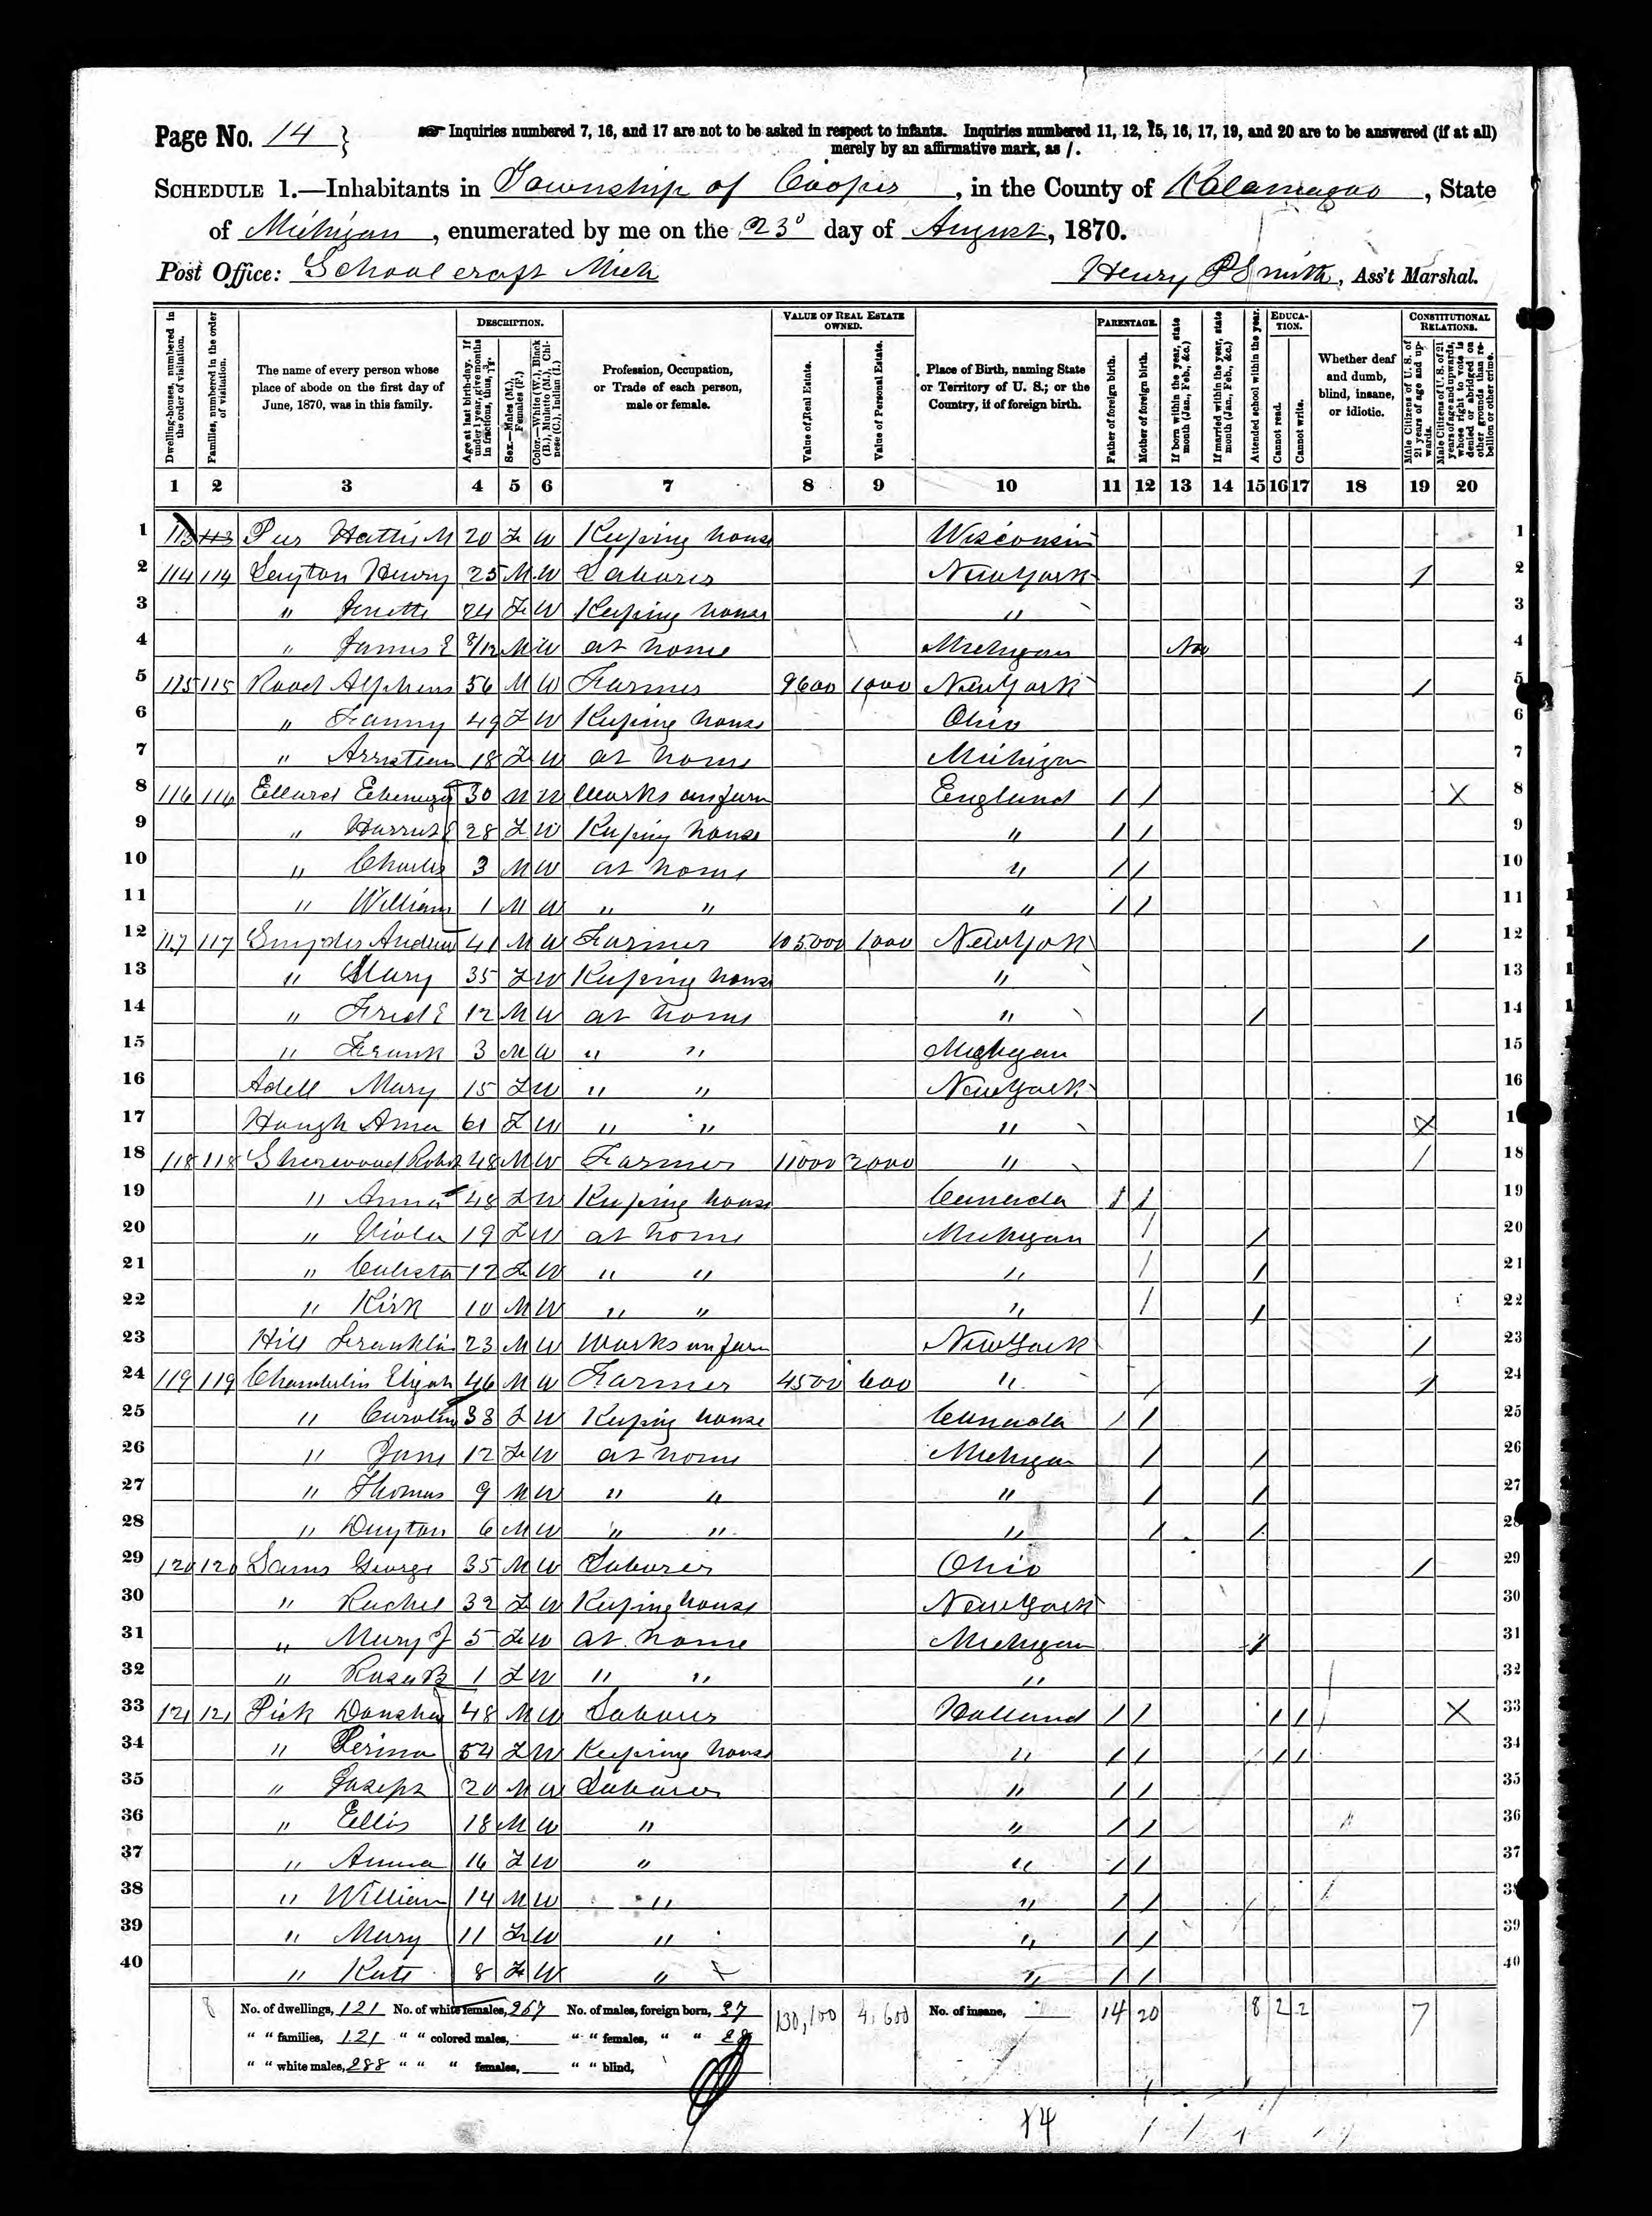 Page No. 14 }
Inquiries numbered 7, 16, and 17 are not to be asked in respect to infants. Inquiries numbered 11, 12, 15, 16, 17, 19, and 20 are to be answered (if at all)
merely by an affirmative mark, as /.
SCHEDULE 1.—Inhabitants in Township of Cooper, in the County of Kalamazoo, State
of Michigan, enumerated by me on the 23d day of August, 1870.
Post Office: Schoolcraft Mich
Henry P Smith, Ass't Marshal.
Dwelling-houses, numbered in the order of visitation.
Families, numbered in the order of visitation.
The name of every person whose place of abode on the first day of June, 1870, was in this family.
DESCRIPTION.
Age at last birth-day. If under 1 year, give months in fractions, thus, 3/12.
Sex.—Males (M.), Females (F.)
Color.—White (W.), Black (B.), Mulatto (M.), Chinese (C.), Indian (I.)
Profession, Occupation, or Trade of each person, male or female.
VALUE OF REAL ESTATE OWNED.
Value of Real Estate.
Value of Personal Estate.
Place of Birth, naming State or Territory of U. S.; or the Country, if of foreign birth.
PARENTAGE.
Father of foreign birth.
Mother of foreign birth.
If born within the year, state month (Jan., Feb., &c.)
If married within the year, state month (Jan., Feb., &c.)
Attended school within the year.
EDUCATION.
Cannot read.
Cannot write.
Whether deaf and dumb, blind, insane, or idiotic.
CONSTITUTIONAL RELATIONS.
Male Citizens of U. S. of 21 years of age and upwards.
Male Citizens of U. S. of 21 years of age and upwards, whose right to vote is denied or abridged on other grounds than rebellion or other crime.
1 2 3 4 5 6 7 8 9 10 11 12 13 14 15 16 17 18 19 20
1 113 113 Hattie M 20 F W Keeping house Wisconsin 1
2 114 114 Layton Henry 25 M W Laborer New York / 2
3 " Jenette 24 F W Keeping house " 3
4 " James E 8/12 M W at home Michigan Nov 4
5 115 115 Rood Alpheus 56 M W Farmer 9600 1000 New York / 5
6 " Fanny 49 F W Keeping house Ohio 6
7 " 18 F W at home Michigan 7
8 116 116 Ellard Ebenezer 30 M W Works on farm England / / X 8
9 " Harriet E 28 F W Keeping house " / / 9
10 " Charles 3 M W at home " / / 10
11 " William 1 M W " " " / / 11
12 117 117 Snyder Andrew 41 M W Farmer 105000 1000 New York / 12
13 " Mary 35 F W Keeping house " 13
14 " Fred E 12 M W at home " / 14
15 " Frank 3 M W " " Michigan 15
16 Adell Mary 15 F W " " New York 16
17 Hough Anna 61 F W " " " X 1
18 118 118 Sherwood Robt 48 M W Farmer 11000 2000 " / 18
19 " Anna 48 F W Keeping house Canada / / 19
20 " Viola 19 F W at home Michigan / / 20
21 " Calista 12 F W " " " / / 21
22 " Kirk 10 M W " " " / / 22
23 Hill Franklin 23 M W Works on farm New York / 23
24 119 119 Chamberlin Elijah 46 M W Farmer 4500 600 " / / 24
25 " Caroline 38 F W Keeping house Canada / / 25
26 " Jane 12 F W at home Michigan / / 26
27 " Thomas 9 M W " " " / / 27
28 " Dayton 6 M W " " " / / 28
29 120 120 Sams George 35 M W Laborer Ohio / 29
30 " Rachel 32 F W Keeping house New York 30
31 " Mary J 5 F W at home Michigan / 31
32 " Rosa B 1 F W " " " 32
33 121 121 Pick 48 M W Laborer Holland / / / / X 33
34 " Perina 54 F W Keeping house " / / / / 34
35 " Joseph 20 M W Laborer " / / 35
36 " Ellis 18 M W " " / / 36
37 " Anna 16 F W " " / / 37
38 " William 14 M W " " / / / 38
39 " Mary 11 F W " " / / 39
40 " Kate 8 F W " " / / 40
8 No. of dwellings, 121 No. of white females, 267 No. of males, foreign born, 37 130,100 4,600 No. of insane, 14 20 8 2 2 7
" " families, 121 " " colored males, " " females, " " 28
" " white males, 288 " " " females, " " blind,
14